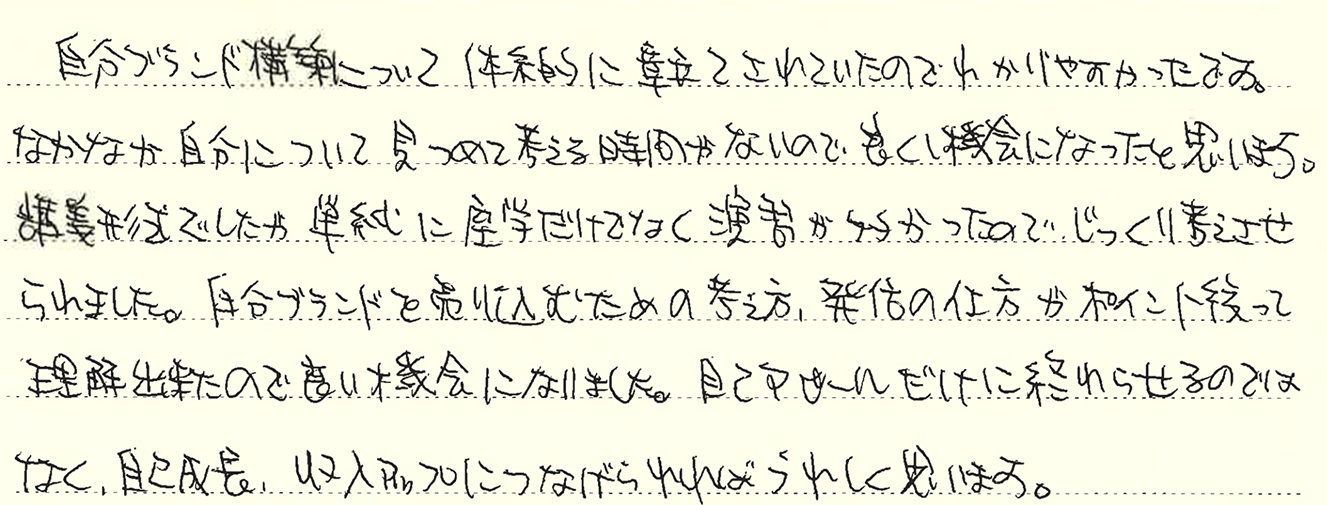 自分ブランド構築について体系的に章立てされていたのでわかりやすかったです。
なかなか自分について見つめて考える時間がないので良くい機会になったと思います。
講義形式でしたが単純に座学だけでなく演習が多かったので、じっくり考えさせ
られました。自分ブランドを売り込むための考え方、発信の仕方がポイント絞って
理解出来たので良い機会になりました。自己アピールだけに終わらせるのでは
なく、自己成長、収入アップにつなげられればうれしく思います。